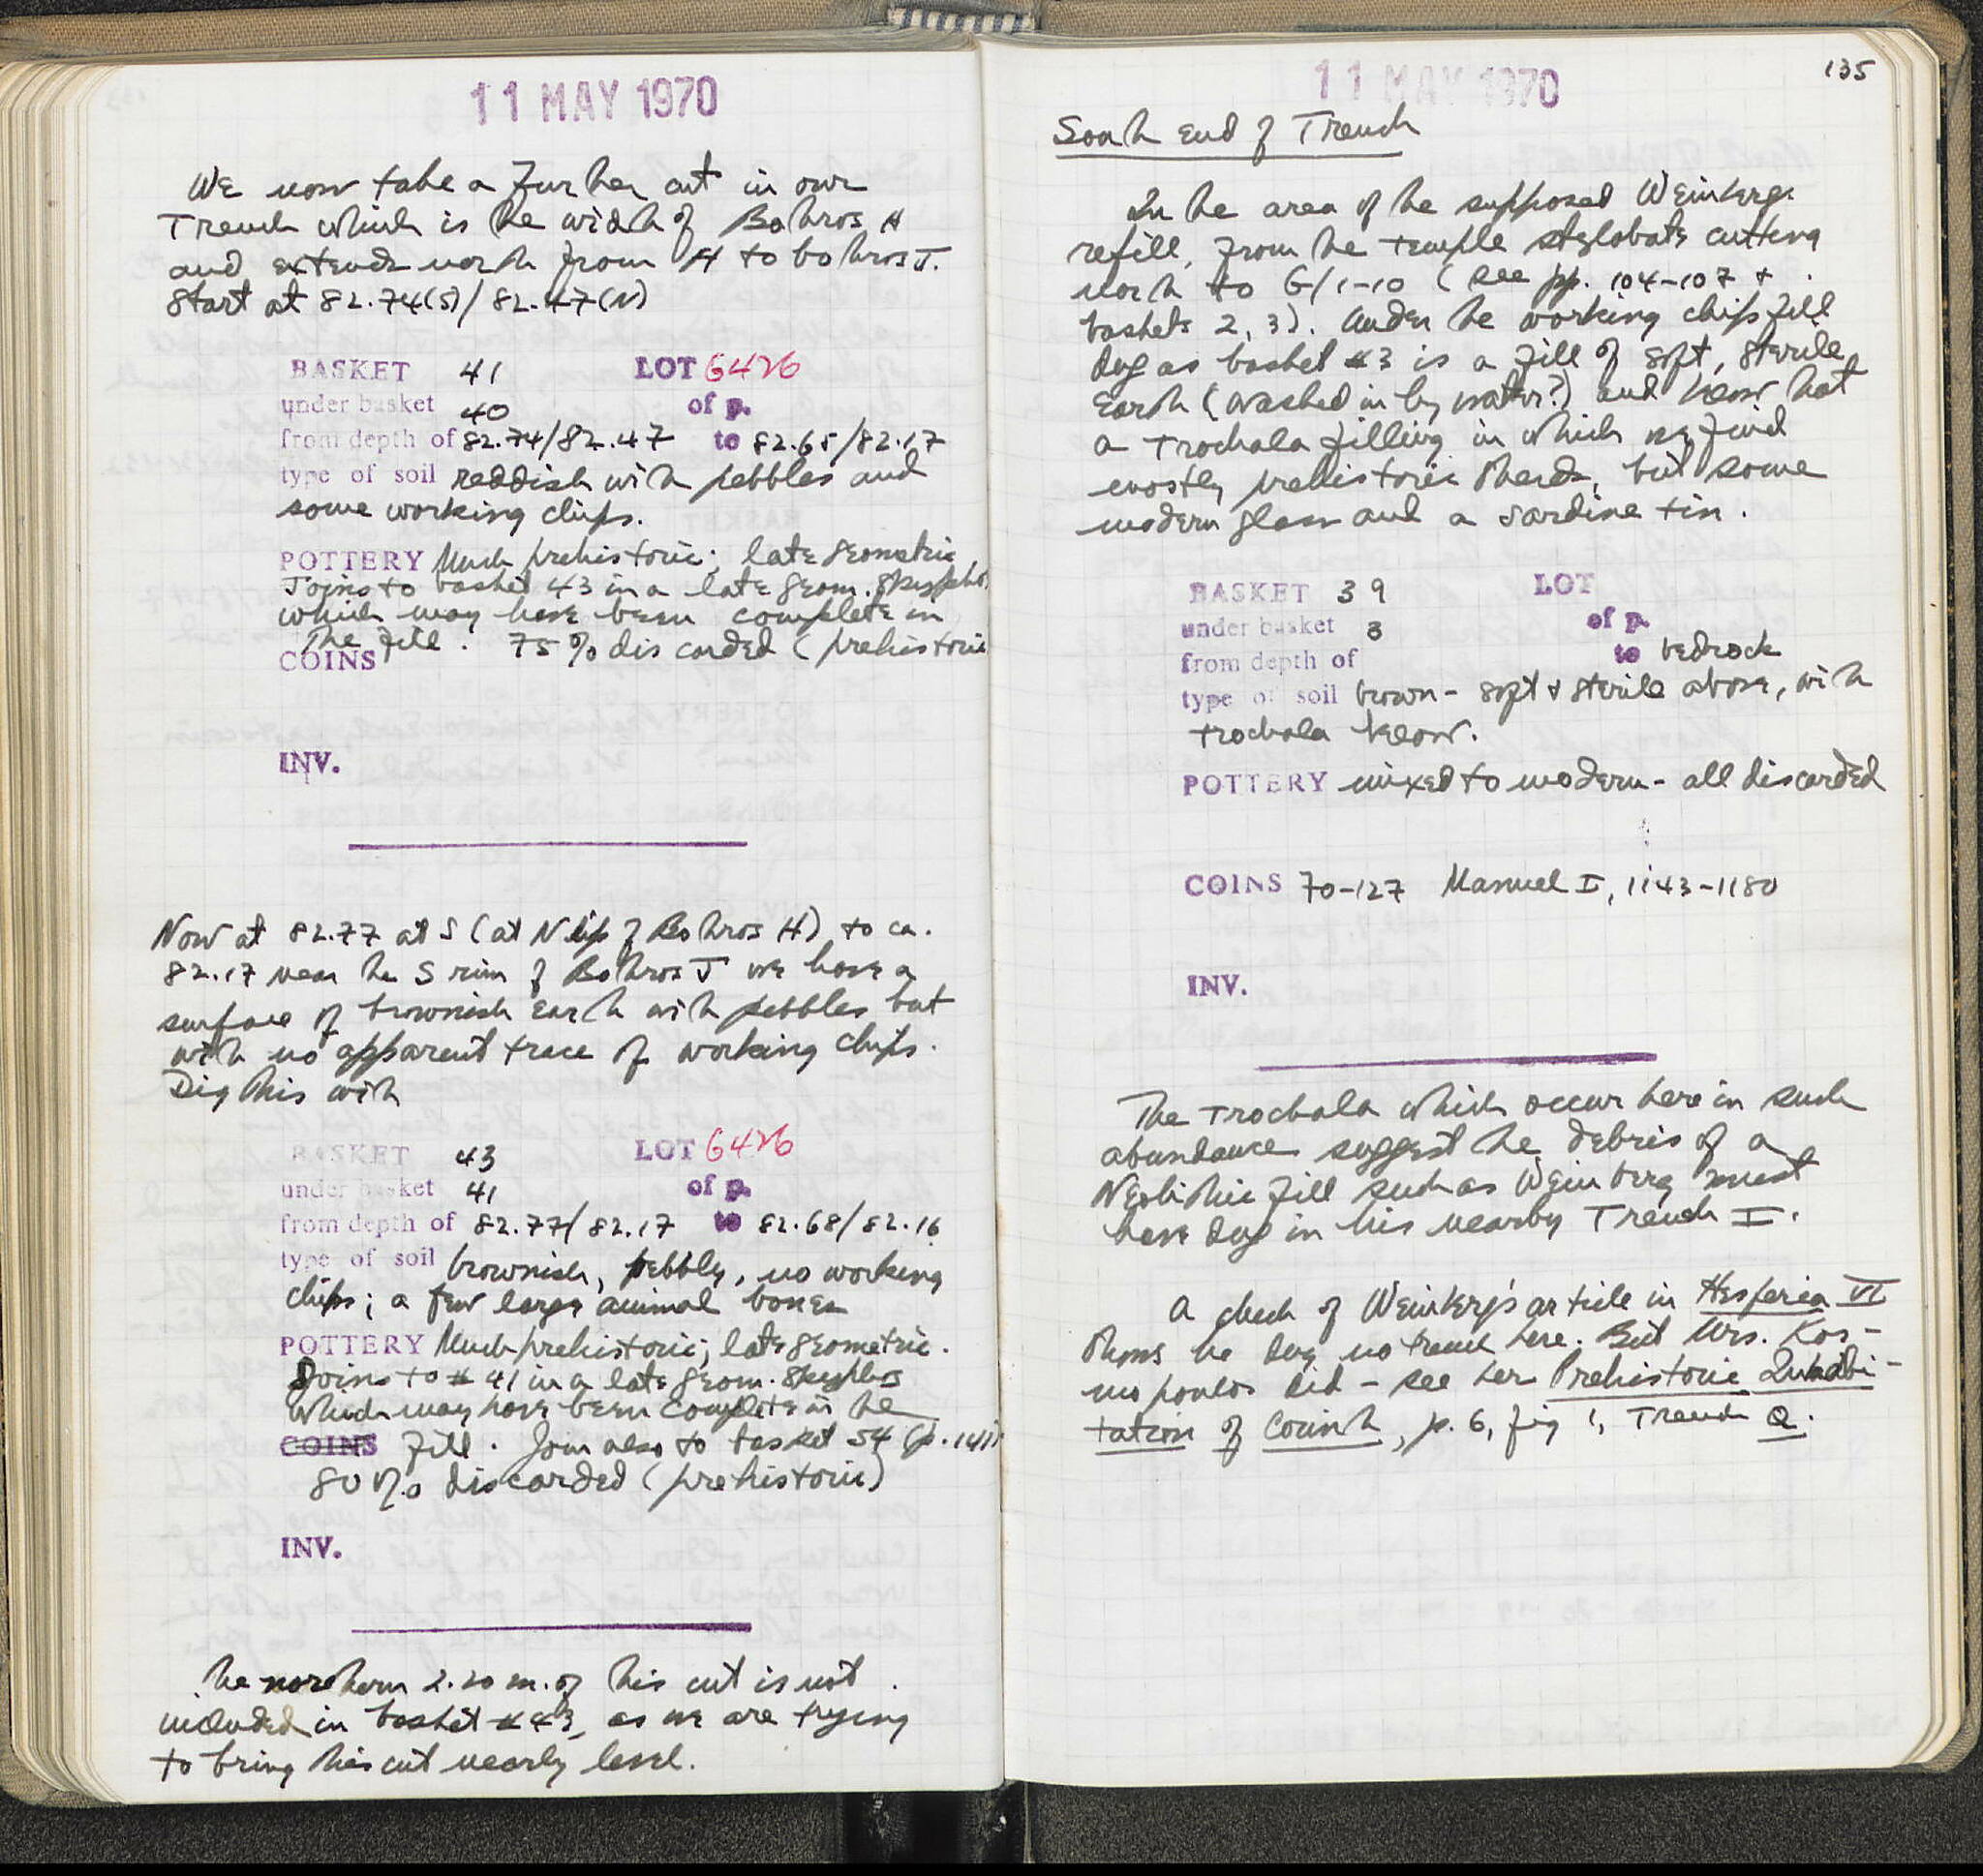 11 MAY 1970
We now take a further cut in our
Trench which is the width of Bothros H
and extends north from H to bothros J.
Start at 82.74(S)/82.47(N)
BASKET 41 LOT 6426
under basket 40 of p.
from depth of 82.74/82.47 to 82.65/82.17
type of soil reddish with pebbles and
some working chips.
POTTERY Much prehistoric; late geometric
Joins to basket 43 in a late geom. skyphos
which may have been complete in
the fill. 75% discarded (prehistoric
COINS
INV.
Now at 82.77 at S (at N lip of Bothros H) to ca.
82.17 near the S rim of Bothros J we have a
surface of brownish earth with pebbles but
with no apparent trace of working chips.
Dig this with
BASKET 43 LOT 6426
under basket 41 of p.
from depth of 82.77/82.17 to 82.68/82.16
type of soil brownish, pebbly, no working
chips; a few large animal bones
POTTERY Much prehistoric; late geometric.
Joins to #41 in a late geom. skyphos
which may have been complete in the
COINS fill. Join also to basket 54 (p. 141)
80% discarded (prehistoric)
INV.
the northern 2.20 m. of this cut is not
included in basket #43, as we are trying
to bring this cut nearly level.
135
11 MAY 1970
South End of Trench
In the area of the supposed Weinberg
refill, from the temple stylobate cutting
north to G/1-10 (see pp. 104-107 +
baskets 2, 3). Under the working chip fill
dug as basket #3 is a fill of soft, sterile
earth (washed in by water?) and below that
a trochala filling in which we find
mostly prehistoric sherds, but some
modern glass and a sardine tin.
BASKET 39 LOT
under basket 3 of p.
from depth of to bedrock
type of soil brown - soft & sterile above, with
trochala below.
POTTERY mixed to modern - all discarded
COINS 70-127 Manuel I, 1143-1180
INV.
The trochala which occur here in such
abundance suggest the debris of a
Neolithic fill such as Weinberg must
have dug in his nearby Trench I.
A check of Weinberg's article in Hesperia VI
shows he dug no trench here. But Mrs. Kos-
mopoulos did - see her Prehistoric Inhabi-
tation of Corinth, p. 6, fig 1, Trench Q.